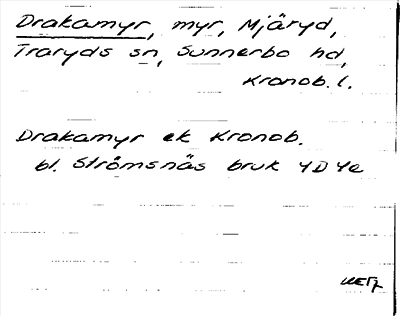 Drakamyr, myr, Mjäryd,
Traryds sn, Sunnerbo hd,
Kronob. l.
Drakamyr ek Kronob.
bl. Strömsnäs bruk 4D 4e